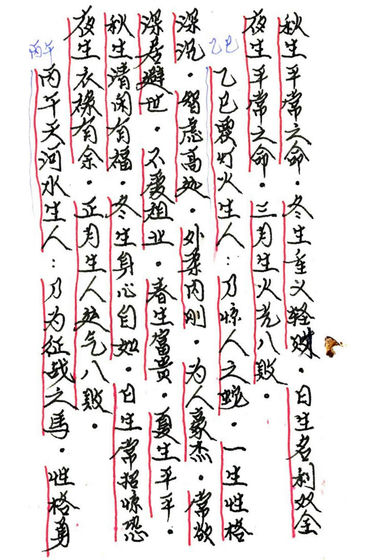 秋生平常之命．冬生重义轻财．日生名利双全
夜生平常之命．三月生火光八败．
乙巳
乙巳覆灯火生人：乃惊人之蛇．一生性格
深沉．智虑高远．外柔内刚．为人豪杰．常欲
深居避世．不爱祖业．春生富贵．夏生平平．
秋生清闲有福．冬生身心自如．日生常招惊恐
夜生衣禄有余．正月生人煞气八败．
丙午
丙午天河水生人：乃为征战之马．性格勇